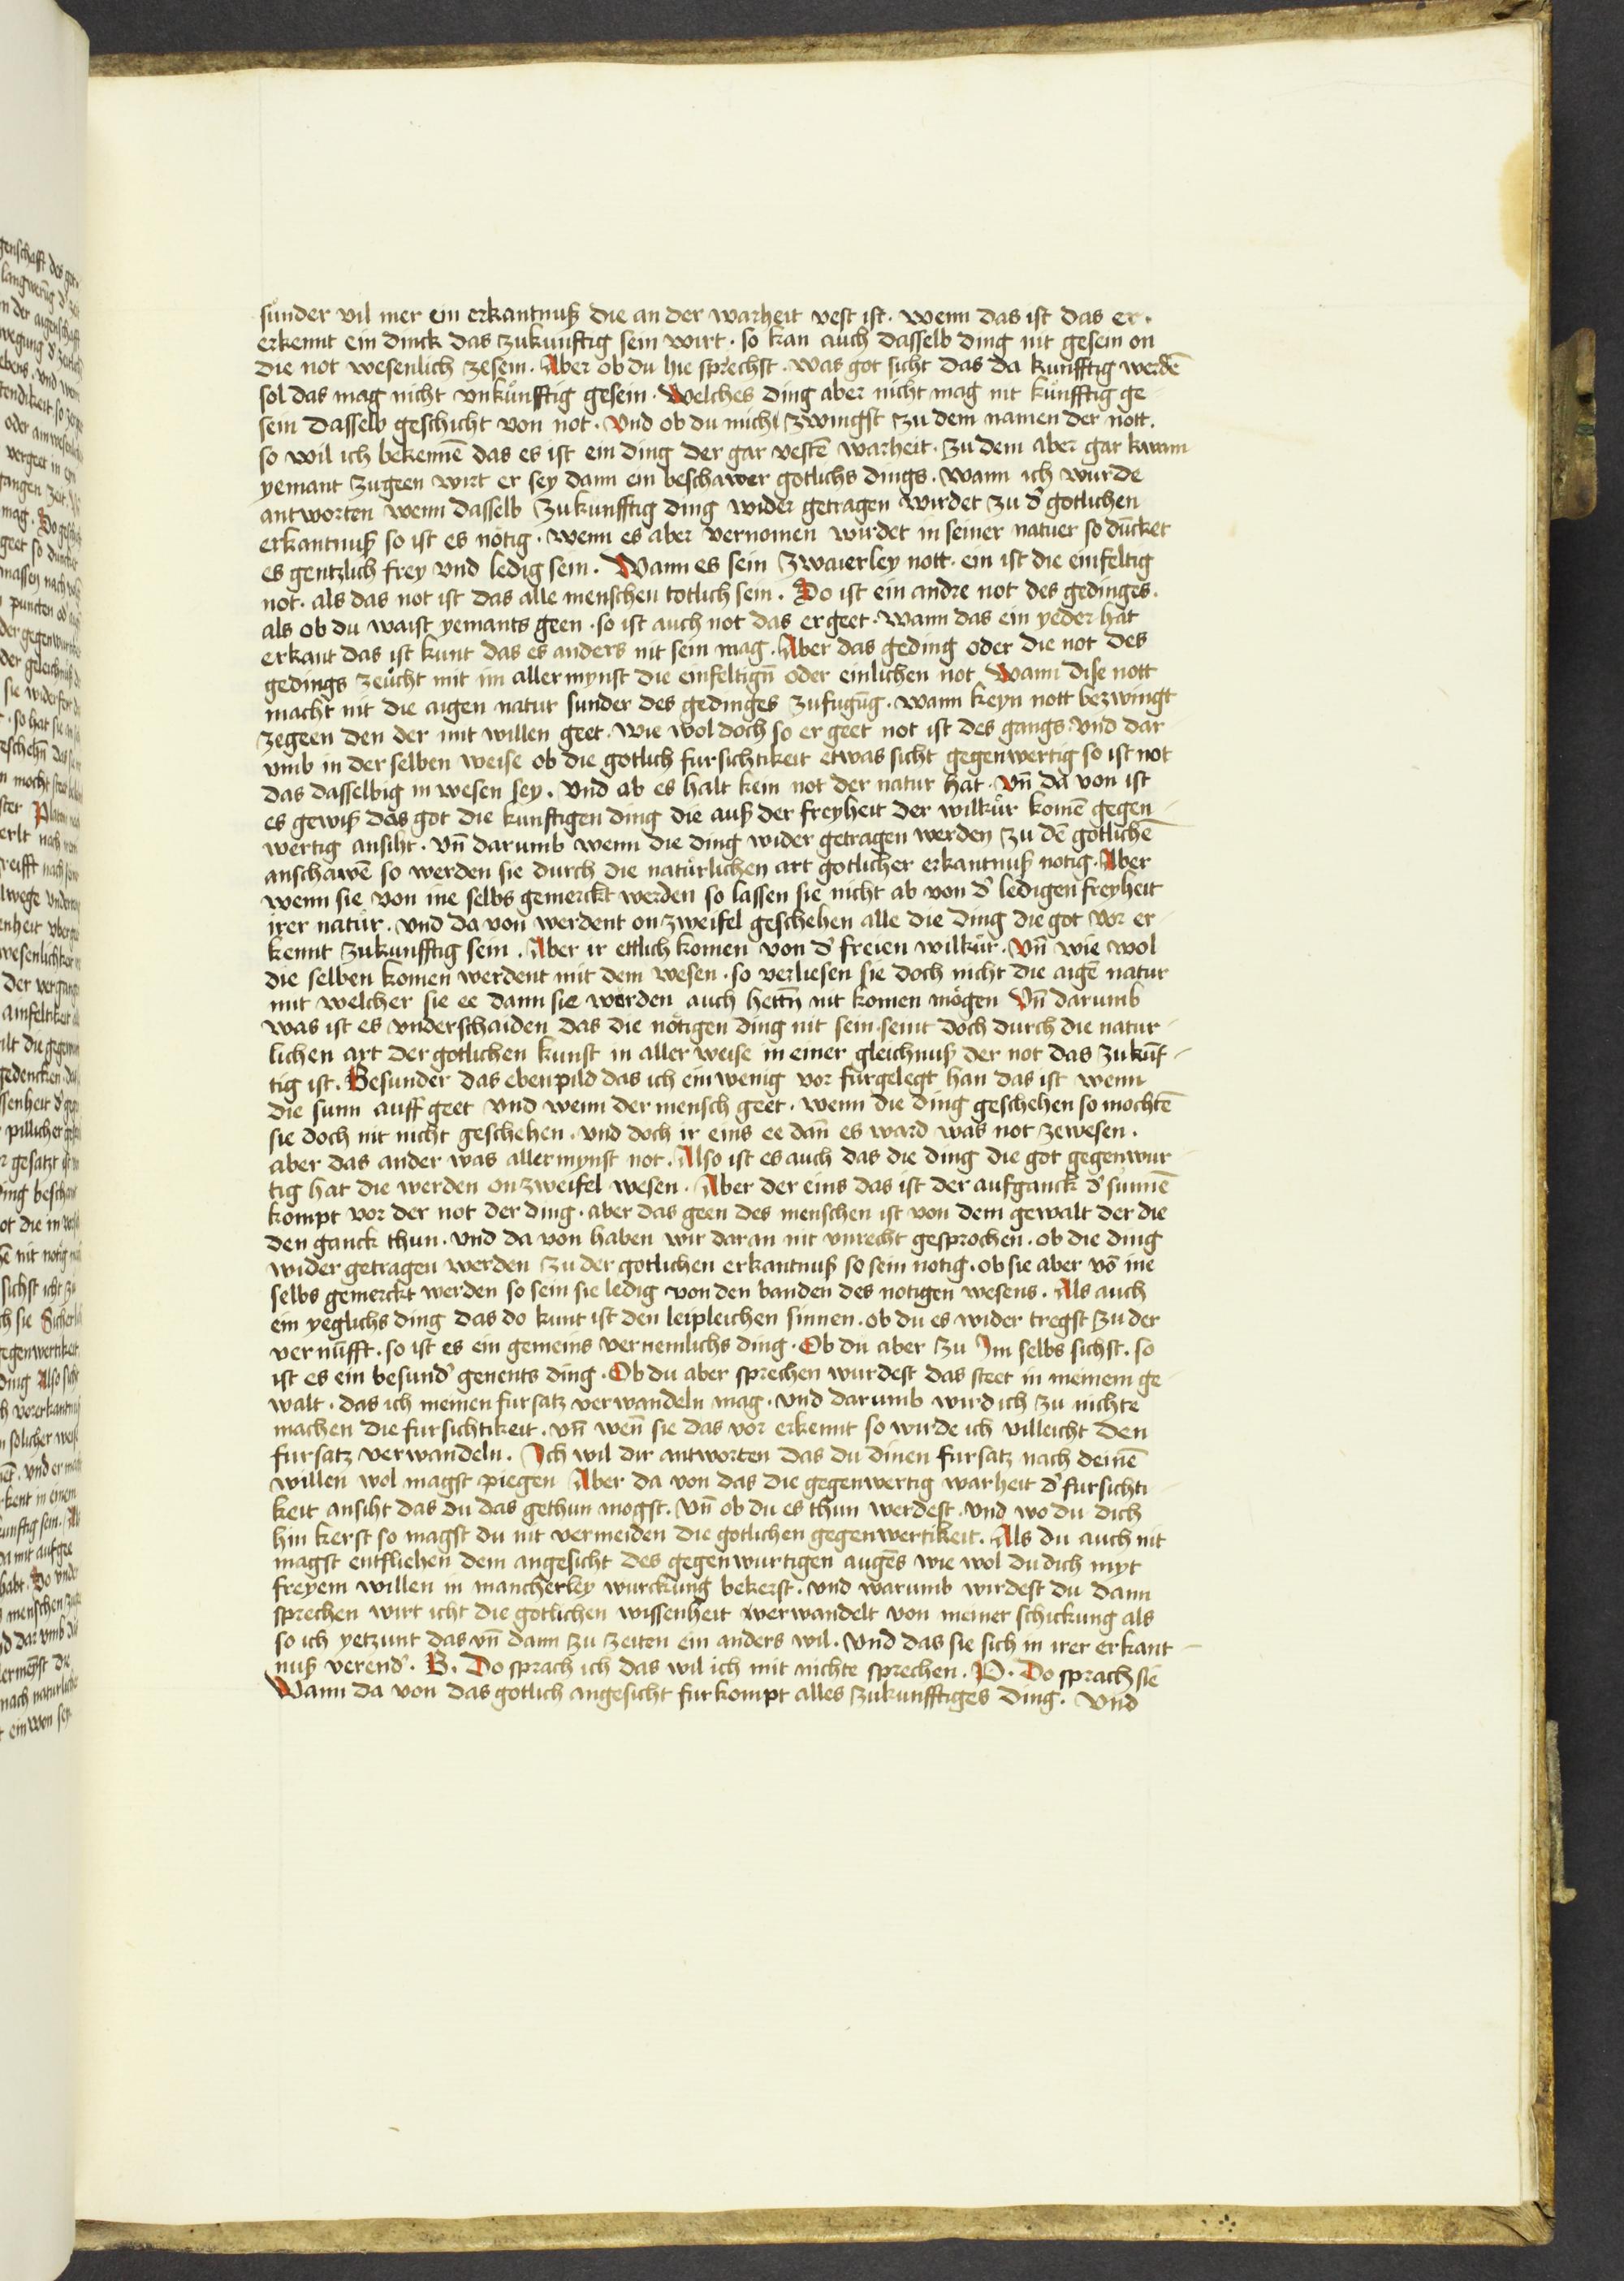 sunder vil mer ein erkantnuß die an der warheit vest ist. wenn das ist das er.
erkennt ein dinck das zukunftig sein wirt. so kan auch dasselb ding nit gesein on
die not wesenlich zesein. Aber ob du hie sprechst. was got sicht das da kunfftig werdē
sol das mag nicht vnkůnfftig gesein. Welches ding aber nicht mag nit kůnfftig ge
sein dasselb geschicht von not. Vnd ob du mich zwingst zu dem namen der nott.
so wil ich bekennē das es ist ein ding der gar vestē warheit. zu dem aber gar kwam
yemant zugeen wirt er sey dann ein beschawer gotlichs dings. Wann ich wurde
antworten wenn dasselb zukunfftig ding wider getragen wirdet zu d' gotlichen
erkantnuß so ist es nötig. wenn es aber vernomen wirdet in seiner natuer so duncket
es gentzlich frey vnd ledig sein. Wann es sein zwaierley nott. ein ist die einfeltig
not. als das not ist das alle menschen totlich sein. Do ist ein andre not des gedinges.
als ob du waist yemants geen. so ist auch not das er geet. Wann das ein yeder hat
erkant das ist kunt das es anders nit sein mag. Aber das geding oder die not des
gedings zeücht mit im aller mynst die einfeltign̄ oder einlichen not Wann dise nott
macht nit die aigen natur sunder des gedinges zufugūg. wann keyn nott bezwingt
zegeen den der mit willen geet. wie wol doch so er geet not ist des gangs. vnd dar
vmb in der selben weise ob die gotlich fursichtikeit etwas sicht gegenwertig so ist not
das dasselbig in wesen sey. Vnd ab es halt kein not der natur hat. Vn̄ da von ist
es gewiß das got die kunftigen ding die auß der freyheit der wilkůr komē gegen-
wertig ansiht. Vn̄ darumb wenn die ding wider getragen werden zu dē gotlichē
anschawē so werden sie durch die natůrlichen art gotlicher erkantnuß notig. Aber
wenn sie von ine selbs gemerckt werden so lassen sie nicht ab von d' ledigen freyheit
irer natur. vnd da von werdent on zweifel geschehen alle die ding die got vor er-
kennt zukunfftig sein. Aber ir ettlich komen von d' freien wilkůr. Vn̄ wie wol
die selben komen werdent mit dem wesen. so verliesen sie doch nicht die aigē natur
mit welcher sie ee dann sie worden auch hettn̄ nit komen mögen Vn̄ darumb
was ist es vnderschaiden das die nötigen ding nit sein. seint doch durch die natur-
lichen art der gotlichen kunst in aller weise in einer gleichnuß der not das zukūf-
tig ist. Besunder das ebenpild das ich ein wenig vor furgelegt han das ist wenn
die sunn auff geet vnd wenn der mensch geet. wenn die ding geschehen so mochtē
sie doch nit nicht geschehen. vnd doch ir eins ee dan̄ es ward was not zewesen.
aber das ander was aller mynst not. Also ist es auch das die ding die got gegenwur-
tig hat die werden on zweifel wesen. Aber der eins das ist der aufganck d' sunnē
kompt vor der not der ding. aber das geen des menschen ist von dem gewalt der die
den ganck thun. vnd da von haben wir daran nit vnrecht gesprochen. ob die ding
wider getragen werden zu der gotlichen erkantnuß so sein notig. ob sie aber vō ine
selbs gemerckt werden so sein sie ledig von den banden des notigen wesens. Als auch
ein yeglichs ding das do kunt ist den leipleichen sinnen. ob du es wider tregst zu der
vernufft. so ist es ein gemeins vernemlichs ding. Ob du aber zu Im selbs sichst. so
ist es ein besund' genents ding. Ob du aber sprechen wurdest das steet in meinem ge
walt. das ich meinen fursatz verwandeln mag. vnd darumb wird ich zu nichte
machen die fursichtikeit. vn̄ wen̄ sie das vor erkennt so wirde ich villeicht den
fursatz verwandeln. Ich wil dir antworten das du dinen fursatz nach deinē
willen wol magst piegen Aber da von das die gegenwertig warheit d' fursichti-
keit ansiht das du das gethun mogst. Vn̄ ob du es thun werdest. vnd wo du dich
hin kerst so magst du nit vermeiden die gotlichen gegenwertikeit. Als du auch nit
magst entfliehen dem angesicht des gegenwurtigen augēs wie wol du dich myt
freyem willen in mancherley wurckung bekerst. vnd warumb wirdest du dann
sprechen wirt icht die gotlichen wissenheit verwandelt von meiner schickung als
so ich yetzunt das vn̄ dann zu zeiten ein anders wil. Vnd das sie sich in irer erkant-
nuß verend'. B. Do sprach ich das wil ich mit nichte sprechen. P. Do sprach sie
Wann da von das gotlich angesicht fur kompt alles zukunfftiges ding. Vnd